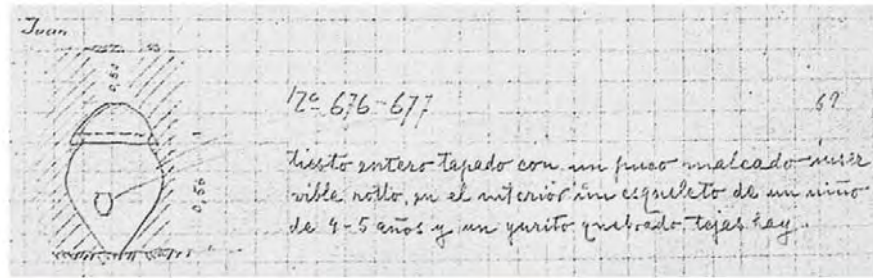 Juan
0,50
Nº 676-677
69
tiesto entero tapado con un puco malcado inser
vible rotto, en el interior un esqueleto de un niño
0,56
de 4-5 años y un yurito quebrado tejas hay.